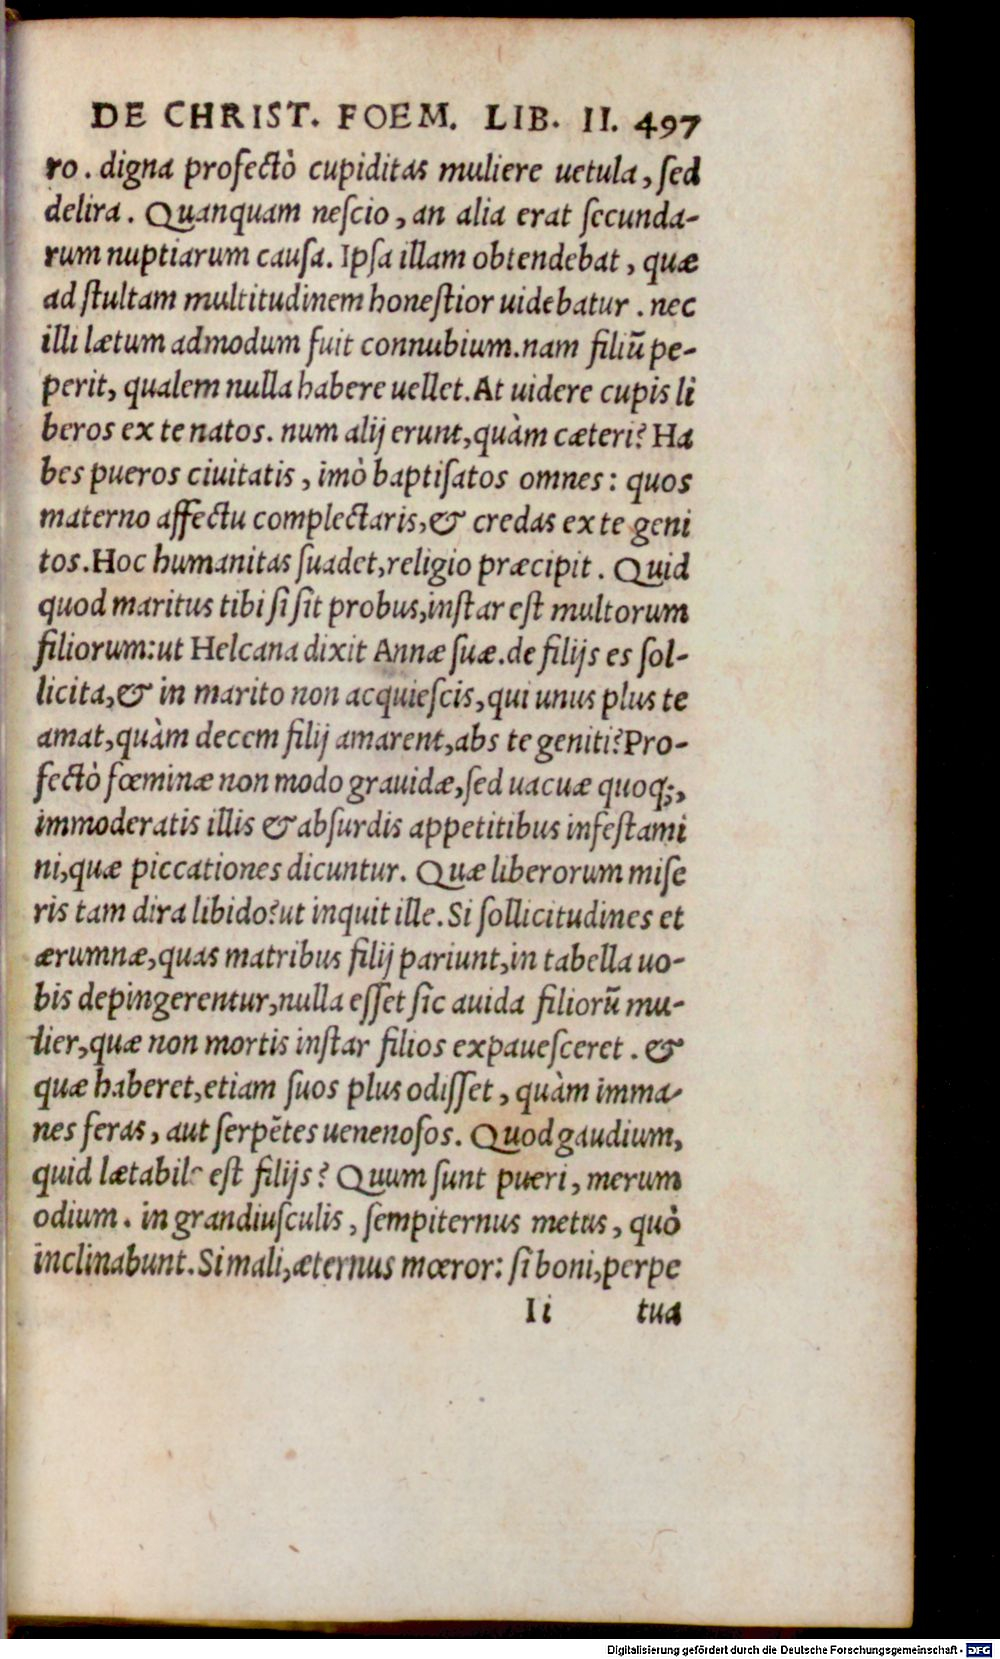 DE CHRIST. FOEM. LIB. II. 497
ro. digna profectò cupiditas muliere uetula, sed
delira. Quanquam nescio, an alia erat secunda-
rum nuptiarum causa. Ipsa illam obtendebat, quæ
ad stultam multitudinem honestior uidebatur. nec
illi lætum admodum fuit connubium. nam filiū pe-
perit, qualem nulla habere uellet. At uidere cupis li
beros ex te natos. num alij erunt, quàm cæteri? Ha
bes pueros ciuitatis, imò baptisatos omnes: quos
materno affectu complectaris, & credas ex te geni
tos. Hoc humanitas suadet, religio præcipit. Quid
quod maritus tibi si sit probus, instar est multorum
filiorum: ut Helcana dixit Annæ suæ. de filijs es sol-
licita, & in marito non acquiescis, qui unus plus te
amat, quàm decem filij amarent, abs te geniti? Pro-
fectò fœminæ non modo grauidæ, sed uacuæ quoq;,
immoderatis illis & absurdis appetitibus infestami
ni, quæ piccationes dicuntur. Quæ liberorum mise
ris tam dira libido? ut inquit ille. Si sollicitudines et
ærumnæ, quas matribus filij pariunt, in tabella uo-
bis depingerentur, nulla esset sic auida filiorū mu-
lier, quæ non mortis instar filios expauesceret. &
quæ haberet, etiam suos plus odisset, quàm imma-
nes feras, aut serpētes uenenosos. Quod gaudium,
quid lætabile est filijs? Quum sunt pueri, merum
odium. in grandiusculis, sempiternus metus, quò
inclinabunt. Si mali, æternus mœror: si boni, perpe
Ii tua
Digitalisierung gefördert durch die Deutsche Forschungsgemeinschaft - DFG